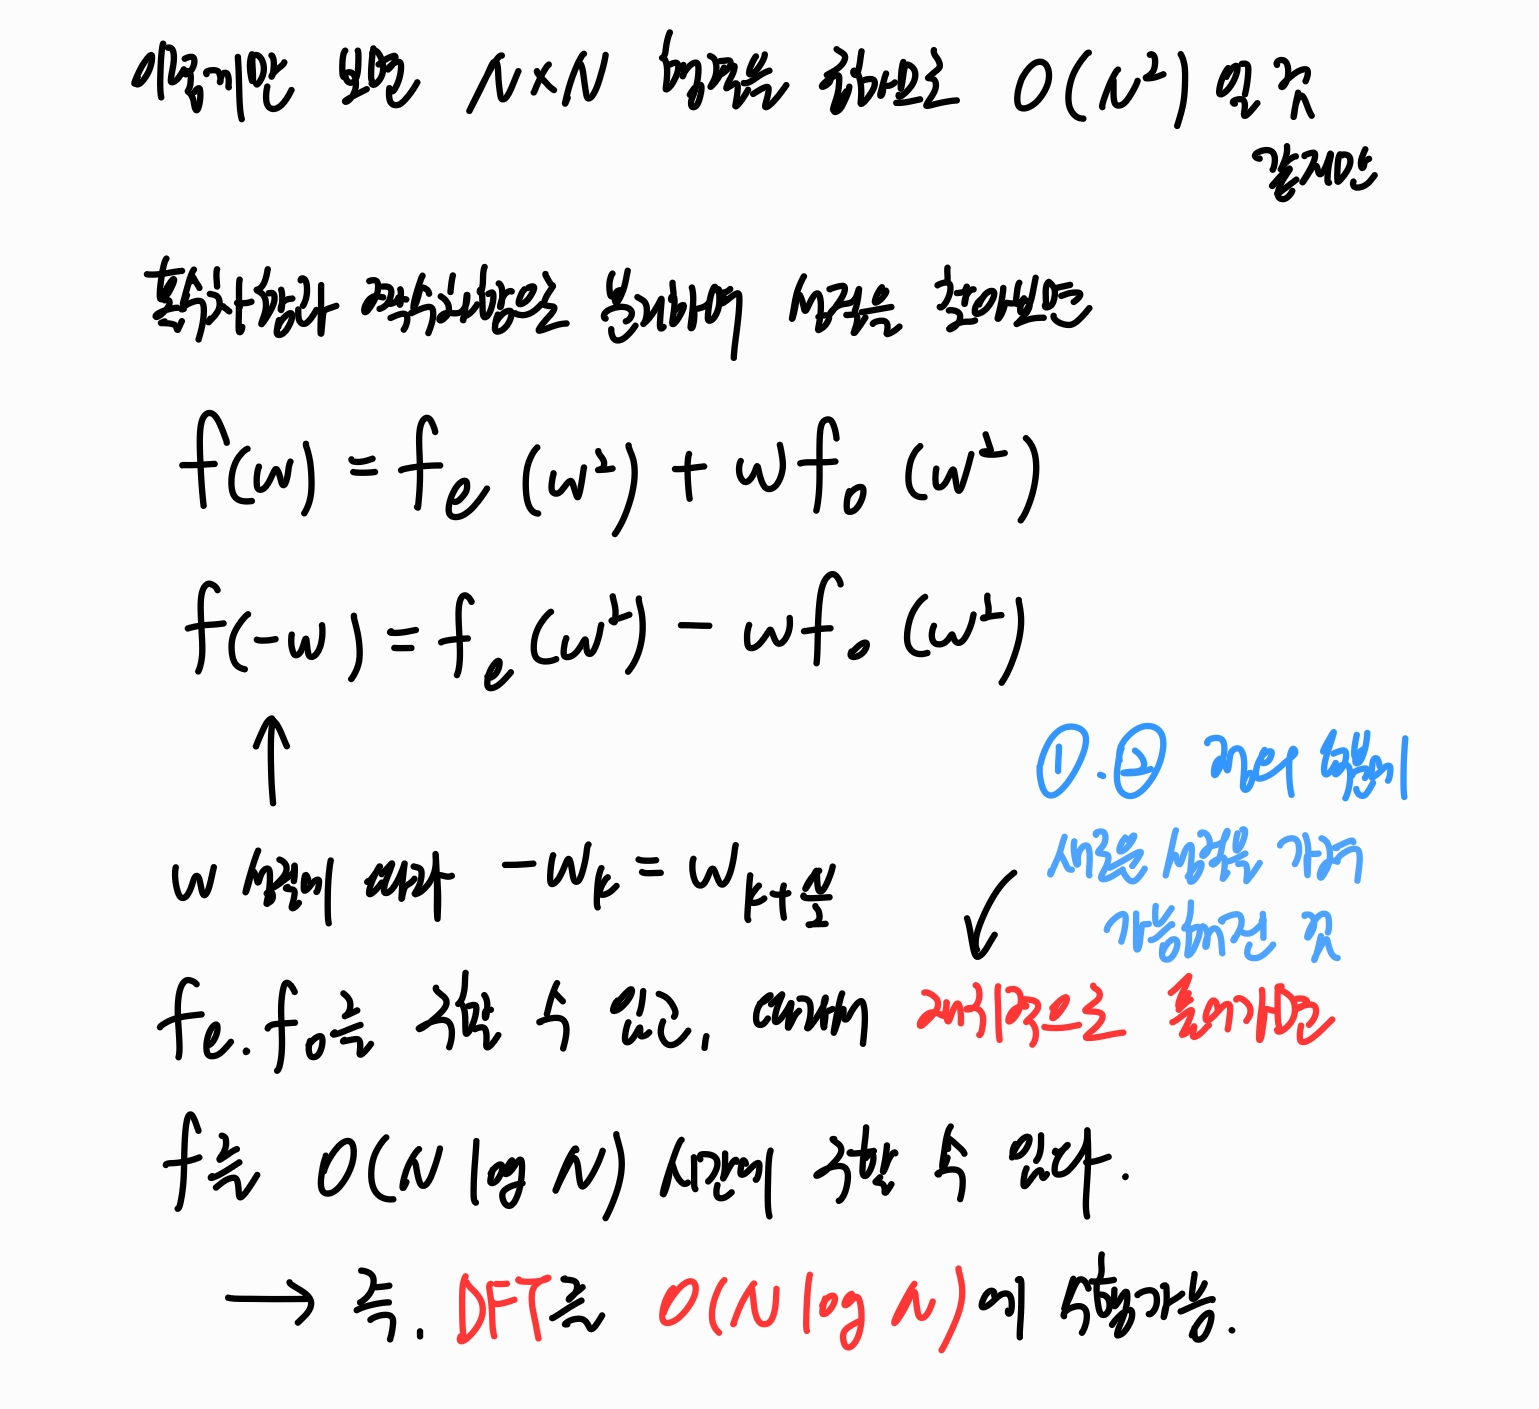 이렇게만 보면 N×N 행렬을 곱하므로 O(N²) 일 것
같지만
홀수차항과 짝수차항으로 분리하여 성질을 찾아보면
f(w) = fₑ (w²) + wfₒ (w²)
f(-w) = fₑ (w²) - wfₒ (w²)
↑
①.② 정의 덕분에
새로운 성질을 가져
가능해진 것
w 성질에 따라 -w_k = w_{k+N/2}
fₑ. fₒ를 구할 수 있고, 따라서 재귀적으로 풀어가면
f를 O(N log N) 시간에 구할 수 있다.
→ 즉. DFT를 O(N log N)에 수행가능.